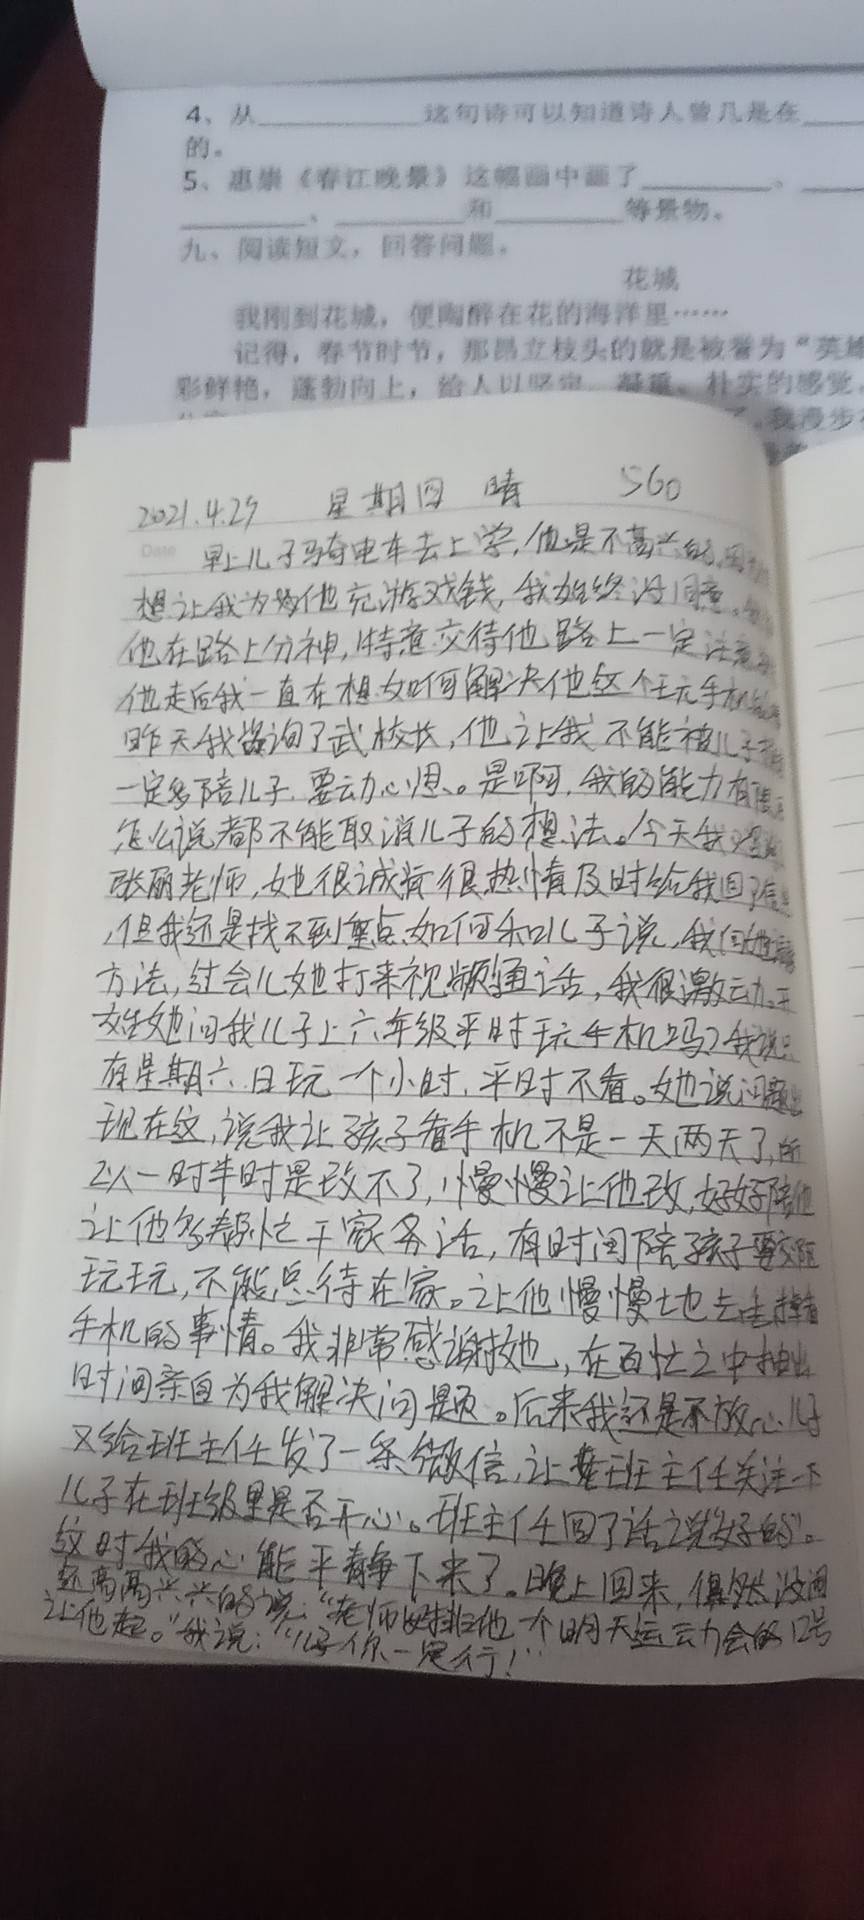 4、从__________这句诗可以知道诗人曾几是在____
的。
5、惠崇《春江晚景》这幅画中画了________、____
________、________和________等景物。
九、阅读短文，回答问题。
花城
我刚到花城，便陶醉在花的海洋里……
记得，春节时节，那昂立枝头的就是被誉为“英雄
彩鲜艳，蓬勃向上，给人以坚定、凝重、朴实的感觉
我漫步在
2021.4.29 星期四 晴 560
早上儿子骑电车去上学,但是不高兴的,因
想让我为他充游戏钱,我始终没同意。
他在路上分神,特意交待他路上一定注意
他走后我一直在想如何解决他这个玩手机
昨天我咨询了武校长,他让我不能被儿子
一定多陪儿子.要动心思。是啊,我的能力有限
怎么说都不能取消儿子的想法。今天我
张丽老师,她很诚恳很热情及时给我回了信息
,但我还是找不到重点,如何和儿子说,我问她
方法,过会儿她打来视频通话,我很激动。开
始她问我儿子上六年级平时玩手机吗?我说只
有星期六.日玩一个小时,平时不看。她说问题出
现在这,说我让孩子看手机不是一天两天了,所
以一时半时是改不了,慢慢让他改,好好陪他
让他多帮忙干家务活,有时间陪孩子
玩玩,不能总待在家。让他慢慢地去
手机的事情。我非常感谢她,在百忙之中抽出
时间亲自为我解决问题。后来我还是不放心儿子
又给班主任发了一条微信,让班主任关注一下
儿子在班级里是否开心。班主任回了话说“好的”。
这时我的心能平静下来了。晚上回来,俱然没闹
还高高兴兴的说:“老师安排他个明天运动会的12号
让他起。”我说:“儿子你一定行!”